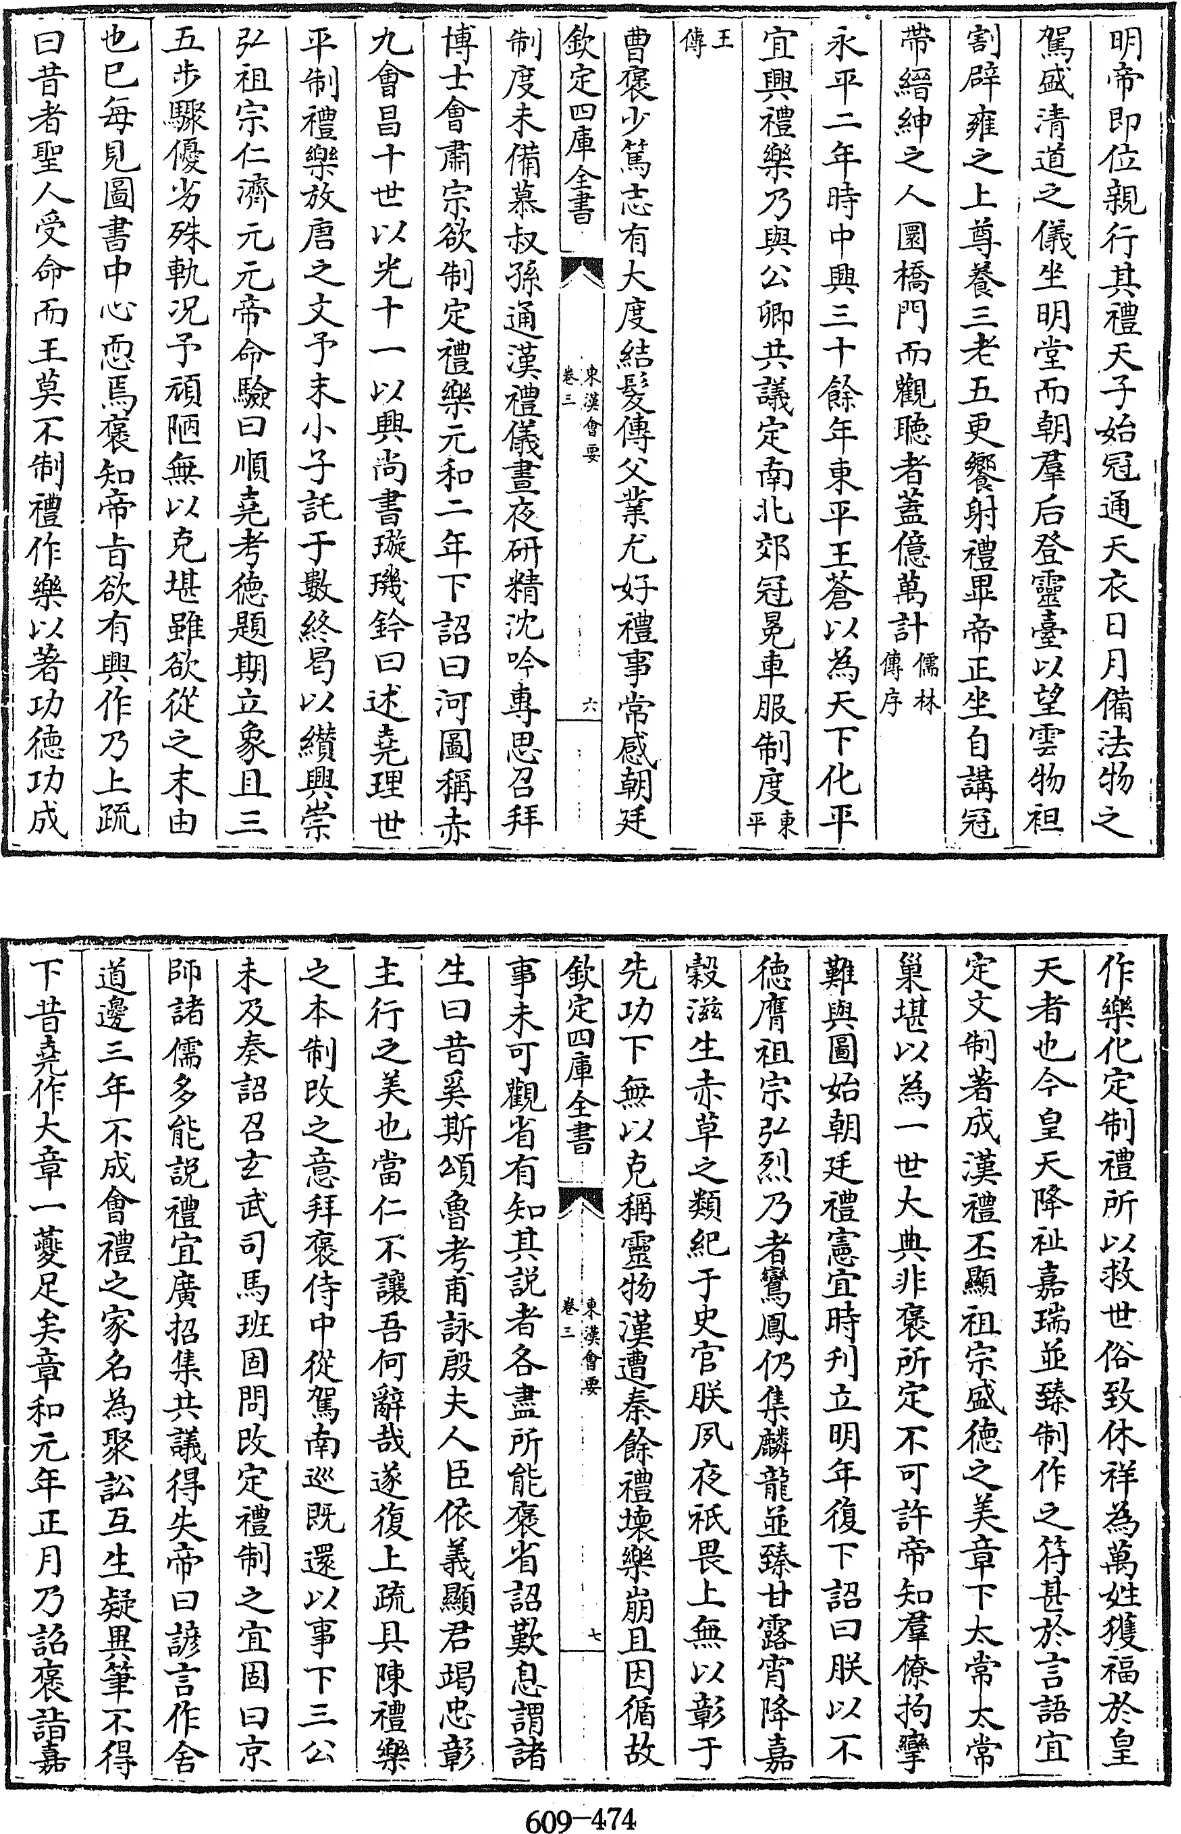 明帝即位親行其禮天子始冠通天衣日月備法物之
駕盛清道之儀坐明堂而朝羣后登靈臺以望雲物袒
割辟雍之上尊養三老五更饗射禮畢帝正坐自講冠
帶縉紳之人圜橋門而觀聽者蓋億萬計儒林傳序
永平二年時中興三十餘年東平王蒼以為天下化平
宜興禮樂乃與公卿共議定南北郊冠冕車服制度東平
王傳
曹褒少篤志有大度結髮傳父業尤好禮事常感朝廷
欽定四庫全書 東漢會要 卷三 六
制度未備慕叔孫通漢禮儀晝夜研精沈吟專思召拜
博士會肅宗欲制定禮樂元和二年下詔曰河圖稱赤
九會昌十世以光十一以興尚書璇璣鈐曰述堯理世
平制禮樂放唐之文予末小子託于數終曷以纘興崇
弘祖宗仁濟元元帝命驗曰順堯考德題期立象且三
五步驟優劣殊軌况予頑陋無以克堪雖欲從之末由
也已每見圖書中心恧焉褒知帝㫖欲有興作乃上疏
曰昔者聖人受命而王莫不制禮作樂以著功德功成
作樂化定制禮所以救世俗致休祥為萬姓獲福於皇
天者也今皇天降祉嘉瑞並臻制作之符甚於言語宜
定文制著成漢禮丕顯祖宗盛德之美章下太常太常
巢堪以為一世大典非褒所定不可許帝知羣僚拘攣
難與圖始朝廷禮憲宜時刋立明年復下詔曰朕以不
德膺祖宗弘烈乃者鸞鳳仍集麟龍並臻甘露宵降嘉
穀滋生赤草之類紀于史官朕夙夜祇畏上無以彰于
先功下無以克稱靈物漢遭秦餘禮壞樂崩且因循故
欽定四庫全書 東漢會要 卷三 七
事未可觀省有知其說者各盡所能褒省詔歎息謂諸
生曰昔奚斯頌魯考甫詠殷夫人臣依義顯君竭忠彰
主行之美也當仁不讓吾何辭哉遂復上疏具陳禮樂
之本制改之意拜褒侍中從駕南巡既還以事下三公
未及奏詔召玄武司馬班固問改定禮制之宜固曰京
師諸儒多能說禮宜廣招集共議得失帝曰諺言作舍
道邊三年不成會禮之家名為聚訟互生疑異筆不得
下昔堯作大章一夔足矣章和元年正月乃詔褒詣嘉
609-474